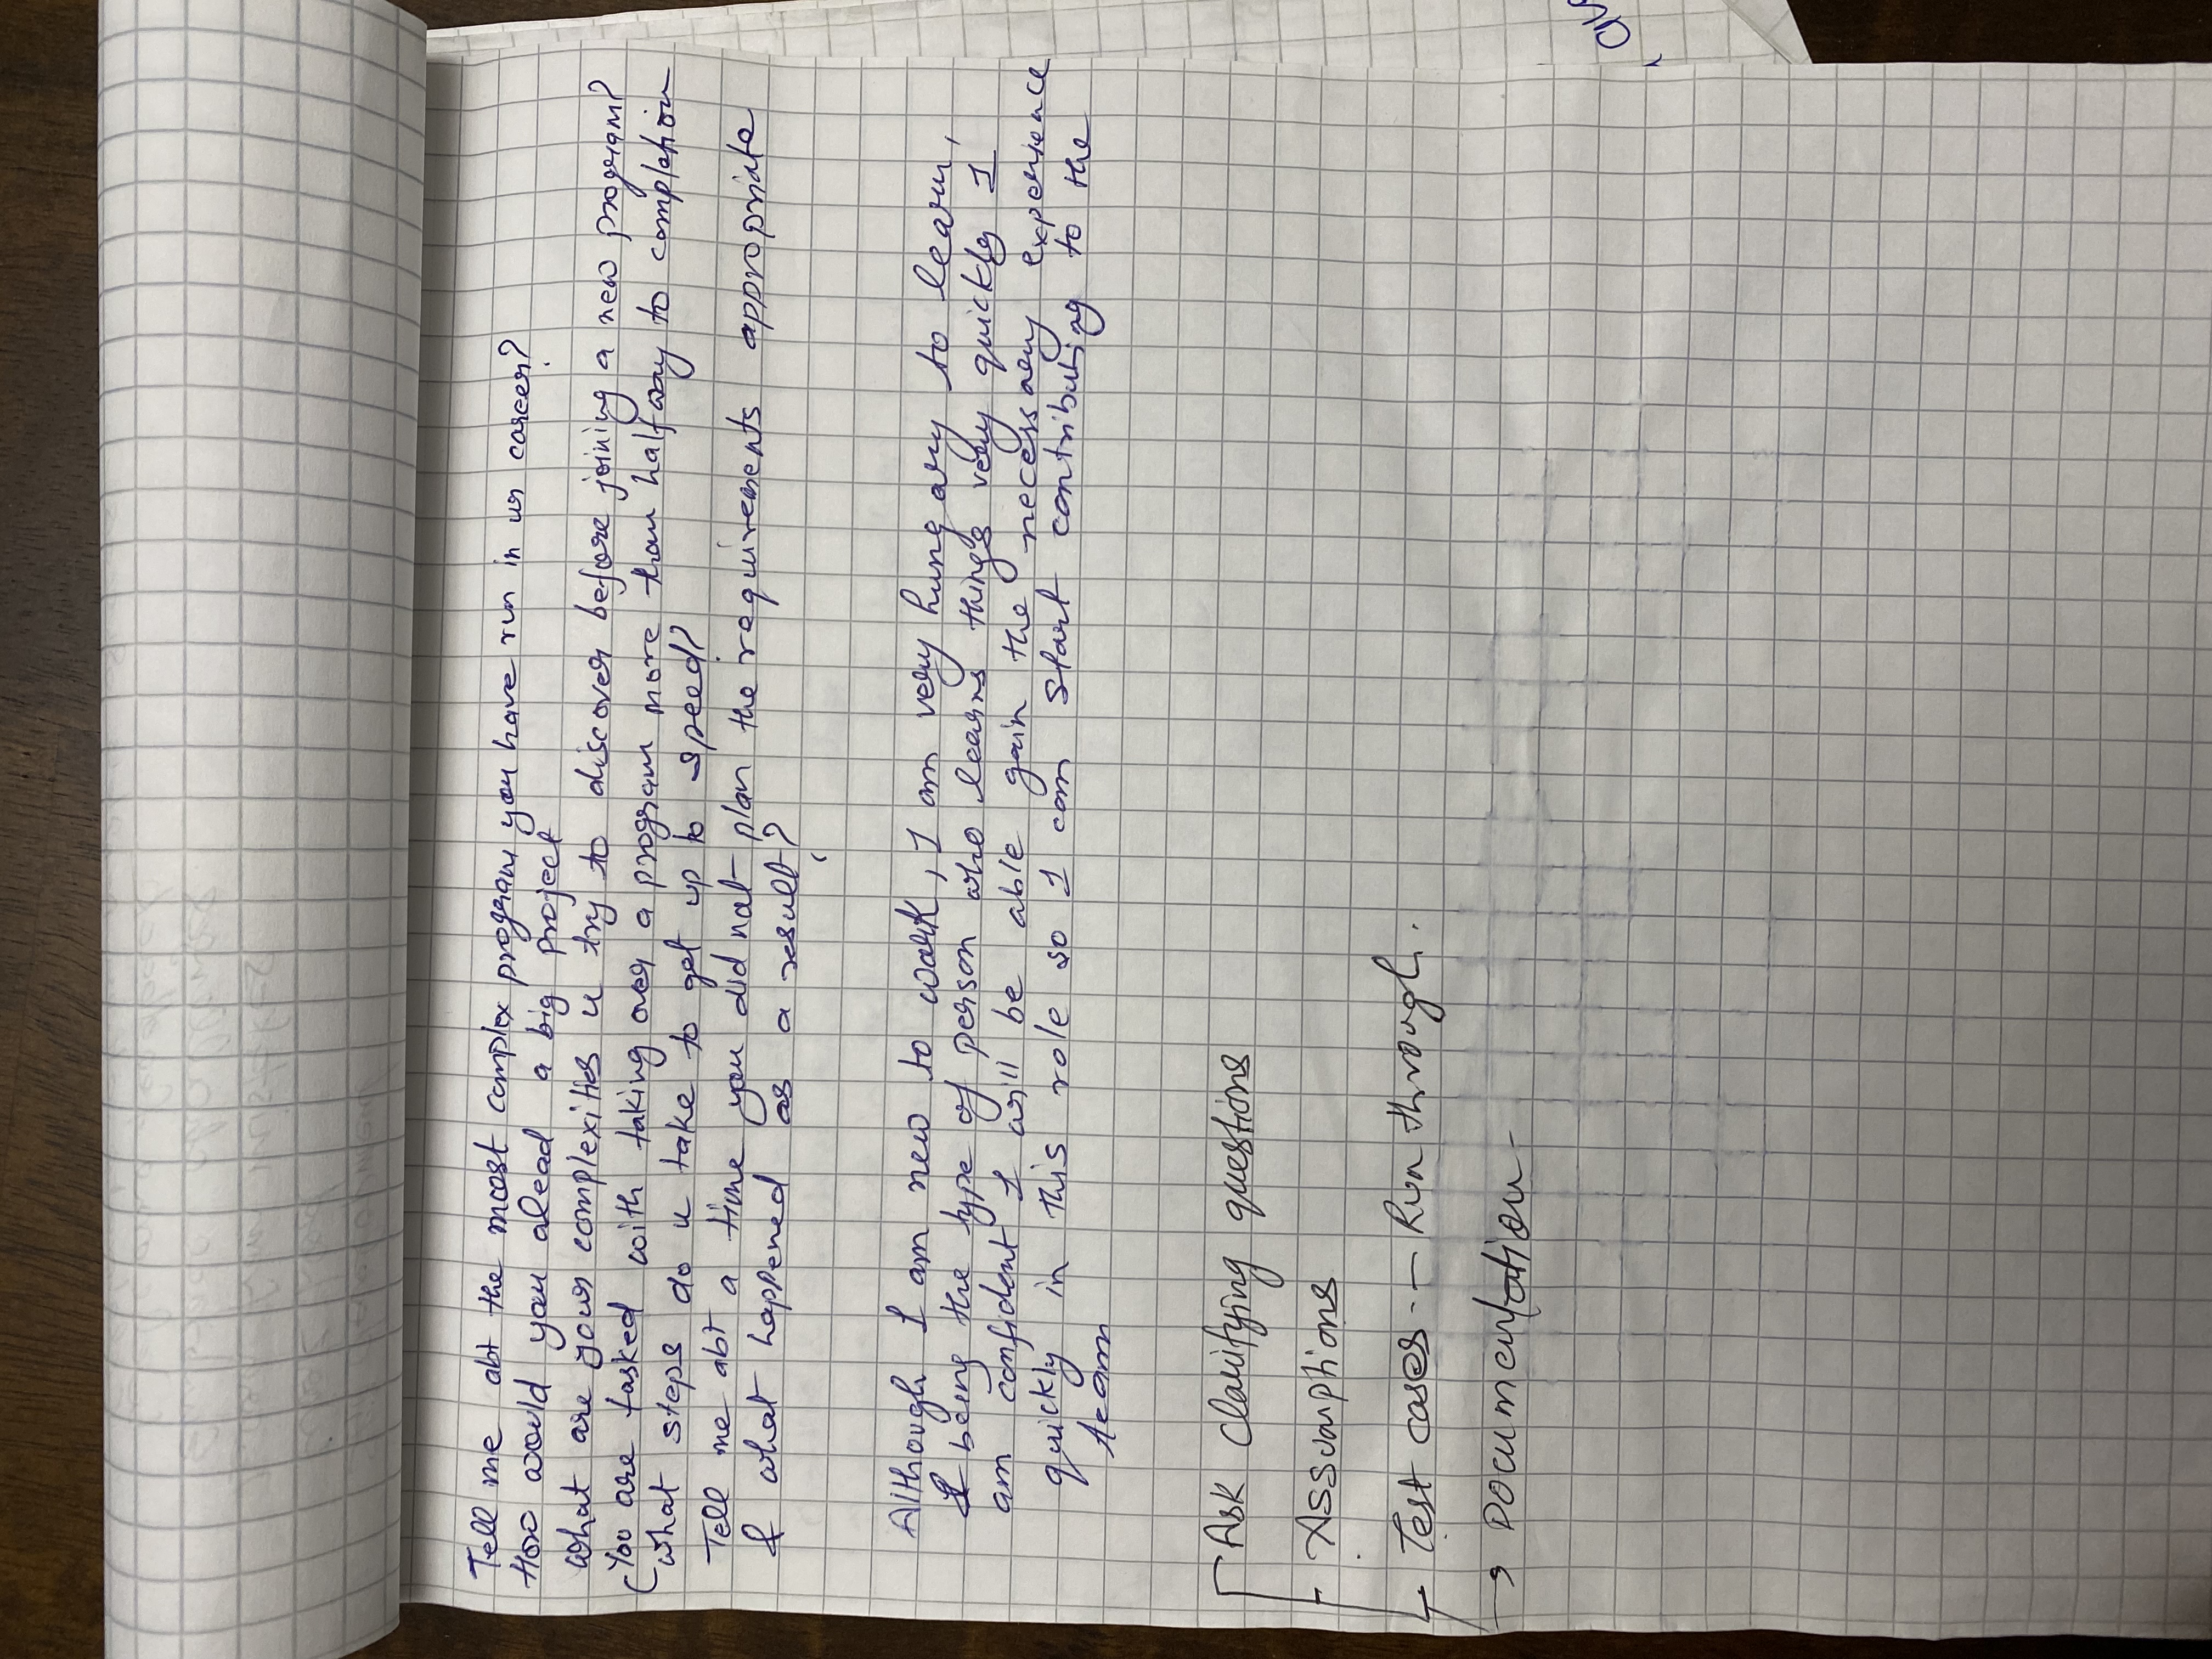 Tell me abt the most complex program you have run in ur career?
How would you alead a big project
What are your complexities u try to discover before joining a new program?
You are tasked with taking over a program more than halfway to completion
what steps do u take to get up to speed?
Tell me abt a time you did not plan the requirements appropriate
& what happened as a result?
Although I am new to work, I am very hungary to learn,
& being the type of person who learns things very quickly I
am confident I will be able gain the necessary experience
quickly in this role so I can start contributing to the
team
Ask clarifying questions
Assumptions
Test cases - - Run through.
→ Documentation -